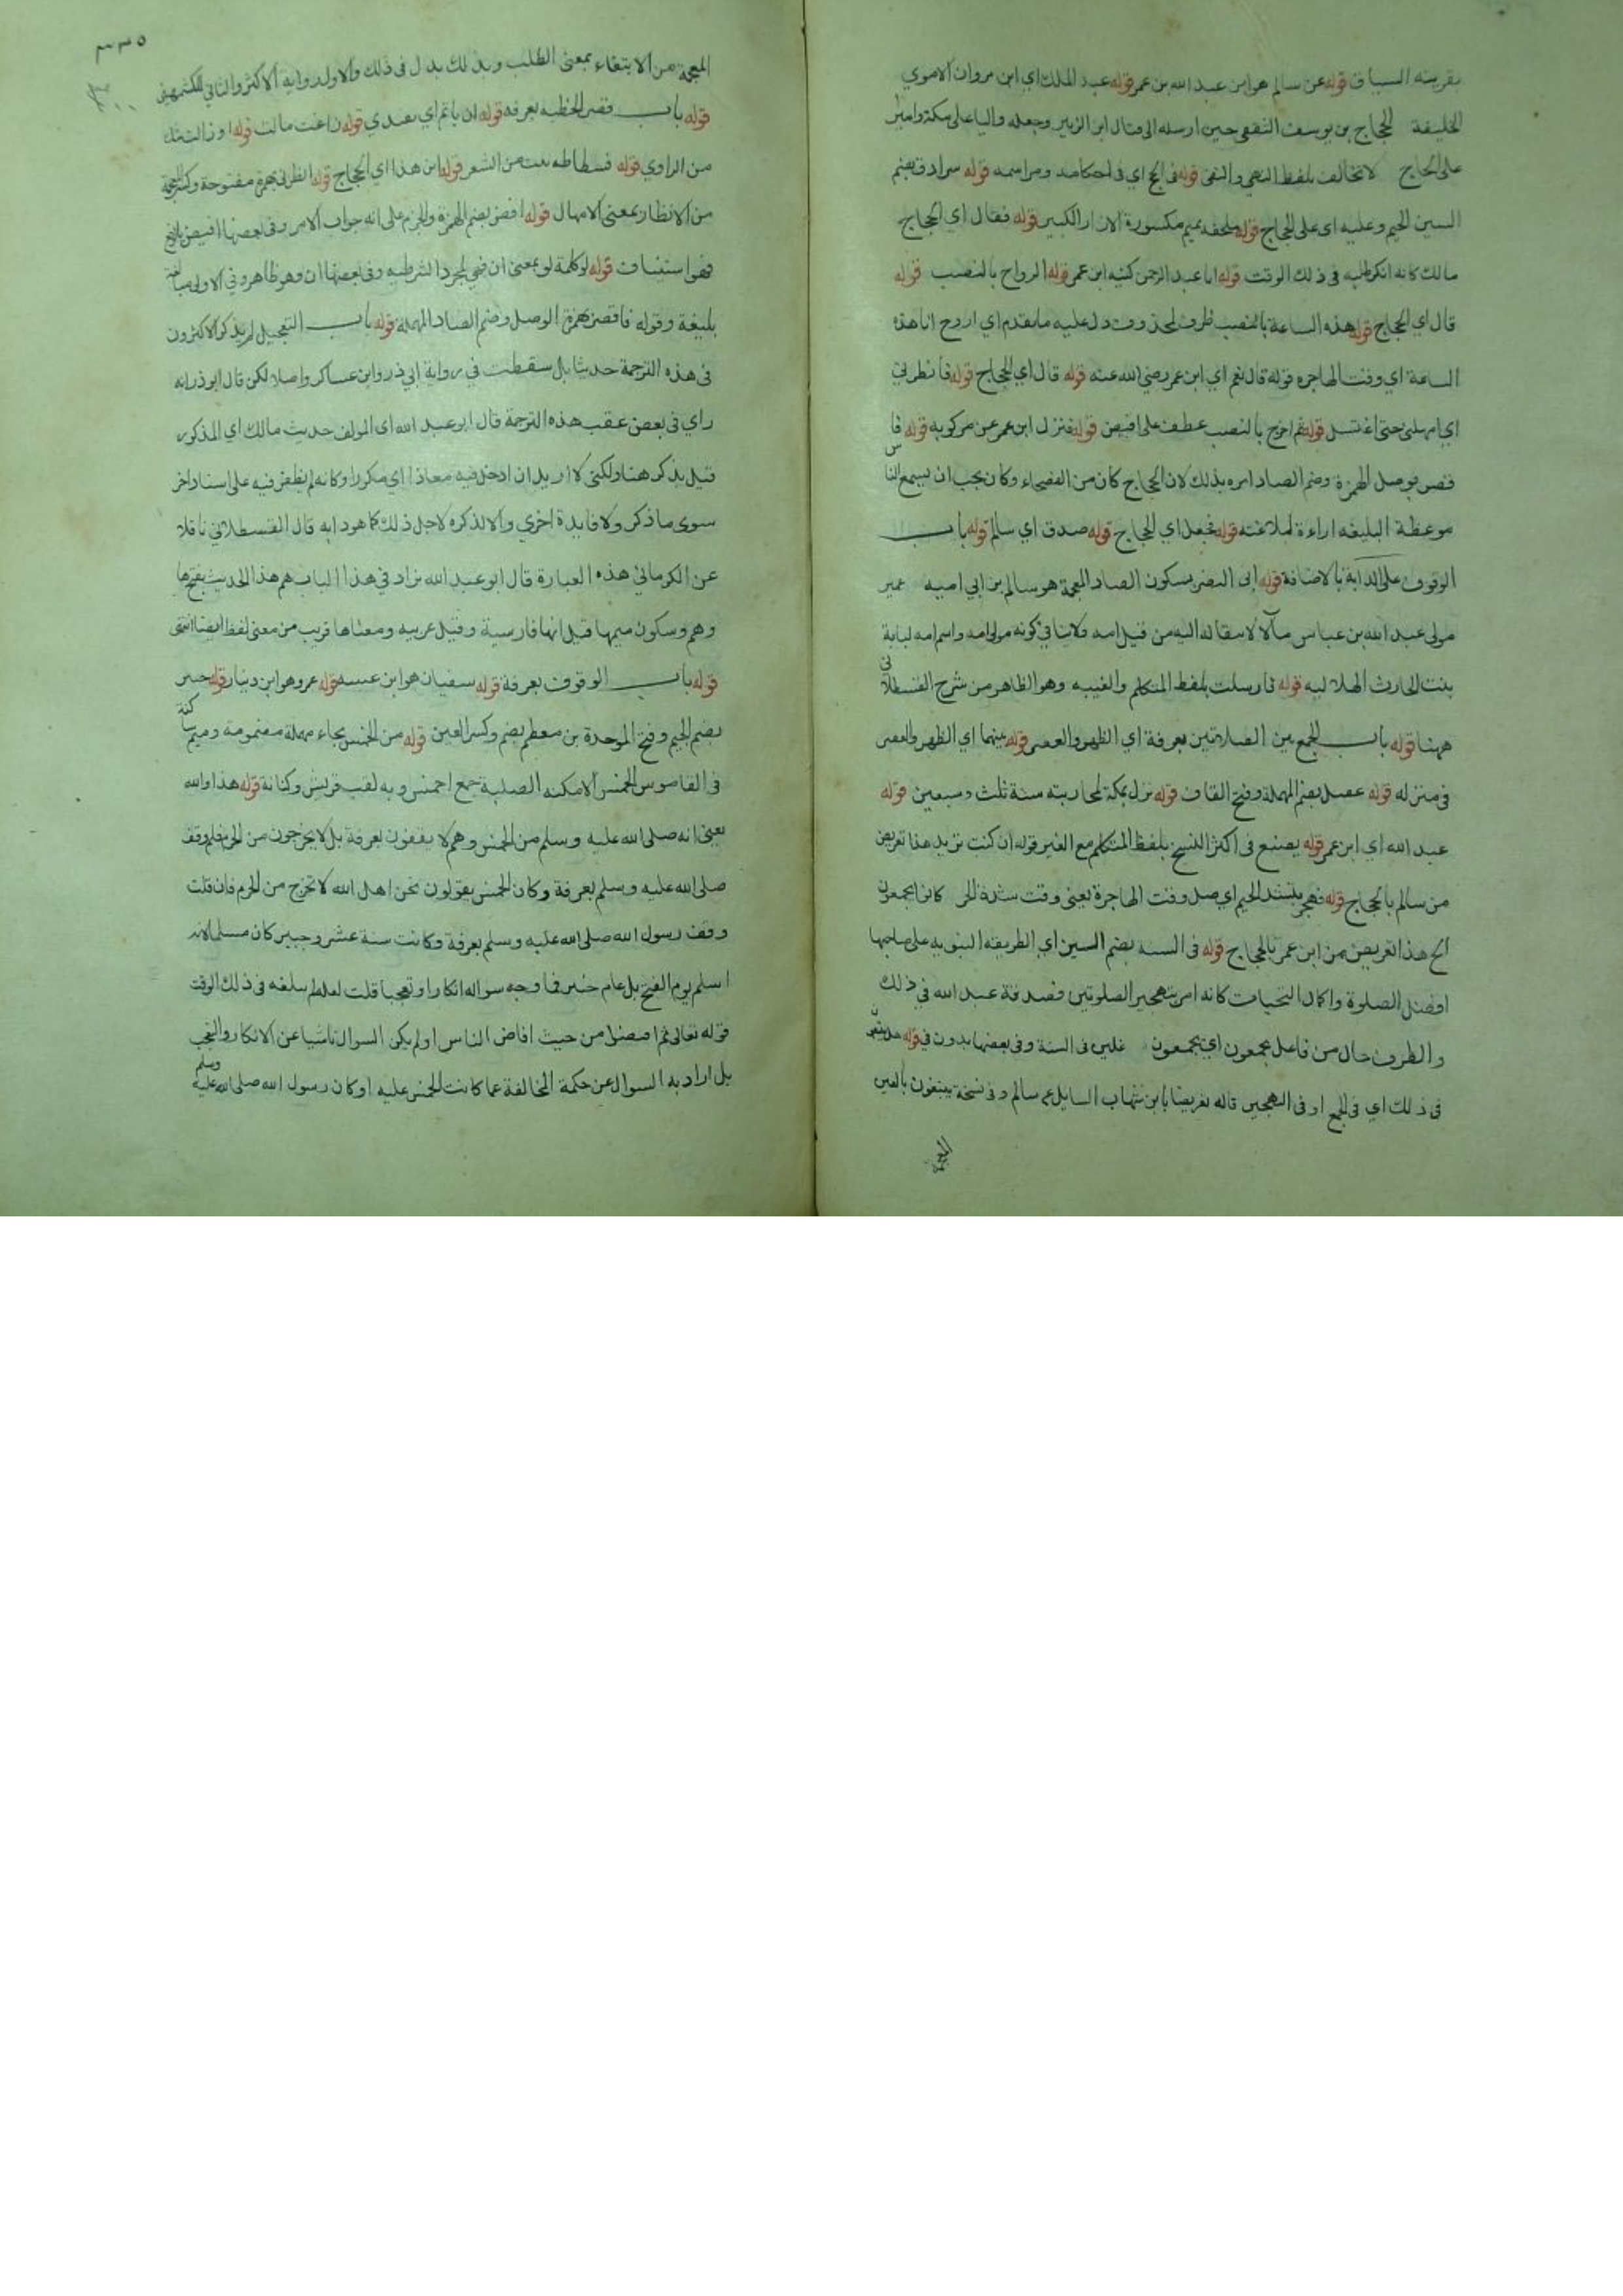 بقرينه السياق قوله عن سالم هو ابن عبد الله بن عمر قوله عبد الملك اي ابن مروان الاموي
الخليفة الحجاج بن يوسف الثقفي حين ارسله الى قتال ابن الزبير وجعله واليا على مكة واميرا
على الحاج لا تخالف بلفظ النهي والنفي قوله في الحج اي في احكامه ومراسمه قوله سرادق بضم
السين الخيم وعليه اى على الحجاج قوله ملحفه بميم مكسورة الازار الكبير قوله فقال اي الحجاج
مالك كانه انكر طلبه في ذلك الوقت قوله ابا عبد الرحمن كنيه ابن عمر قوله الرواح بالنصب قوله
قال اي الحجاج قوله هذه الساعة بالنصب ظرف لمحذوف دل عليه ما يقدم اي اروح انا هذه
الساعة اي وقت الهاجره قوله قال نعم اي ابن عمر رضي الله عنه قوله قال اي الحجاج قوله فانظرني
اي امهلني حتى اغتسل قوله ثم اخرج بالنصب عطف على افيض قوله فنزل ابن عمر عن مركوبه قوله فا
قصر بوصل الهمزة وضم الصاد امره بذلك لان الحجاج كان من الفصحاء وكان يحب ان يسمع الناس
موعظة البليغه اراءة لبلاغته قوله فجعل اي الحجاج قوله صدق اي سالم قوله باب
الوقوف على الدابة بالاضافة قوله ابى النضر بسكون الضاد المعجمة هو سالم بن ابي اميه عمير
مولى عبد الله بن عباس مآلا لانتقاله اليه من قبل امه ولا ينافي كونه مولى امه واسم امه لبابة
بنت الحارث الهلاليه قوله فارسلت بلفظ المتكلم والغيبه وهو الظاهر من شرح القسطلانى
ههنا قوله باب الجمع بين الصلاتين بعرفة اي الظهر والعصر قوله بينهما اي الظهر والعصر
في منزله قوله عقيل بضم المهملة وفتح القاف قوله نزل بمكة لمحاربته سنة ثلث وسبعين قوله
عبد الله اي ابن عمر قوله يصنع في اكثر النسخ بلفظ المتكلم مع الغير قوله ان كنت تريد هذا تعريض
من سالم بالحجاج قوله فهجر بتشديد الجيم اي صل وقت الهاجرة يعني وقت شدة الحر كانوا يجمعون
الخ هذا تعريض من ابن عمر بالحجاج قوله في السنه بضم السين اي الطريقه النبويه على صاحبها
افضل الصلوة واكمل التحيات كانه امر بتهجير الصلوتين فصدقه عبد الله في ذلك
والظرف حال من فاعل يجمعون اي يجمعون في السنة وفي بعضها بدون في قوله هل يتبعون
في ذلك اي في الجمع او في التهجير قاله تعريضا بابن شهاب السايل عن سالم وفي نسخة يبتغون بالغين
المعجمة
٣٣٥
المعجمة من الابتغاء بمعنى الطلب وبذلك بدل في ذلك والاول رواية الاكثر والثاني للكشميهني
قوله باب قصر الخطبه بعرفه قوله ان ياتم اي يقتدي قوله زاغت مالت قوله او زالت شك
من الراوي قوله فسطاطه بيت من الشعر قوله اين هذا اي الحجاج قوله انظرني بهمزة مفتوحة وكسر المعجمة
من الانظار بمعنى الامهال قوله افض بضم الهمزة والجزم على انه جواب الامر وفي بعضها افيض بالرفع
فهو استيناف قوله لو كلمة لو بمعنى ان فهي لمجرد الشرطيه وفي بعضها ان وهو ظاهر وفي الاولى مبالغة
بليغة وقوله فاقصر بهمزة الوصل وضم الصاد المهملة قوله باب التعجيل لم يذكر الاكثرون
في هذه الترجمة حديثا بل سقطت في رواية ابي ذر وابن عساكر واصلا لكن قال ابو ذر انه
راي في بعض عقب هذه الترجمة قال ابو عبد الله اى المولف حديث مالك اي المذكور
قبل يذكر هنا ولكنى لا اريد ان ادخل فيه معادا اي مكررا وكانه لم يظفر فيه على اسناد اخر
سوى ما ذكر ولا فايدة اخرى والا لذكره لاجل ذلك كما هو دابه قال القسطلاني ناقلا
عن الكرماني هذه العبارة قال ابو عبد الله يزاد في هذا الباب هم هذا الحديث بفتح ها
وهم وسكون ميمها قيل انها فارسية وقيل عربيه ومعناها قريب من معنى لفظ ايضا انتهى
قوله باب الوقوف بعرفة قوله سفيان هو ابن عيينه قوله عمرو هو ابن دينار قوله جبير
بضم الجيم وفتح الموحدة بن مطعم بضم وكسر العين قوله من الحمس بحاء مهملة مضمومه وميم ساكنة
في القاموس الحمس الامكنه الصلبة جمع احمس وبه لقب قريش وكنانة قوله هذا والله
يعني انه صلى الله عليه وسلم من الحمس وهم لا يقفون بعرفة بل لا يخرجون من الحرم فلم وقف
صلى الله عليه وسلم بعرفة وكان الحمس يقولون نحن اهل الله لا نخرج من الحرم فان قلت
وقف رسول الله صلى الله عليه وسلم بعرفة وكانت سنة عشر وجبير كان مسلما لانه
اسلم يوم الفتح بل عام خيبر فما وجه سواله انكارا وتعجبا قلت لعله لم يبلغه في ذلك الوقت
قوله تعالى ثم افيضوا من حيث افاض الناس او لم يكن السوال ناشيا عن الانكار والتعجب
بل اراد به السوال عن حكمة المخالفة عما كانت الحمس عليه او كان رسول الله صلى الله عليه وسلم